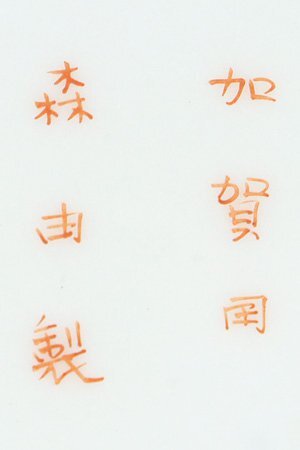 加賀国
森由製